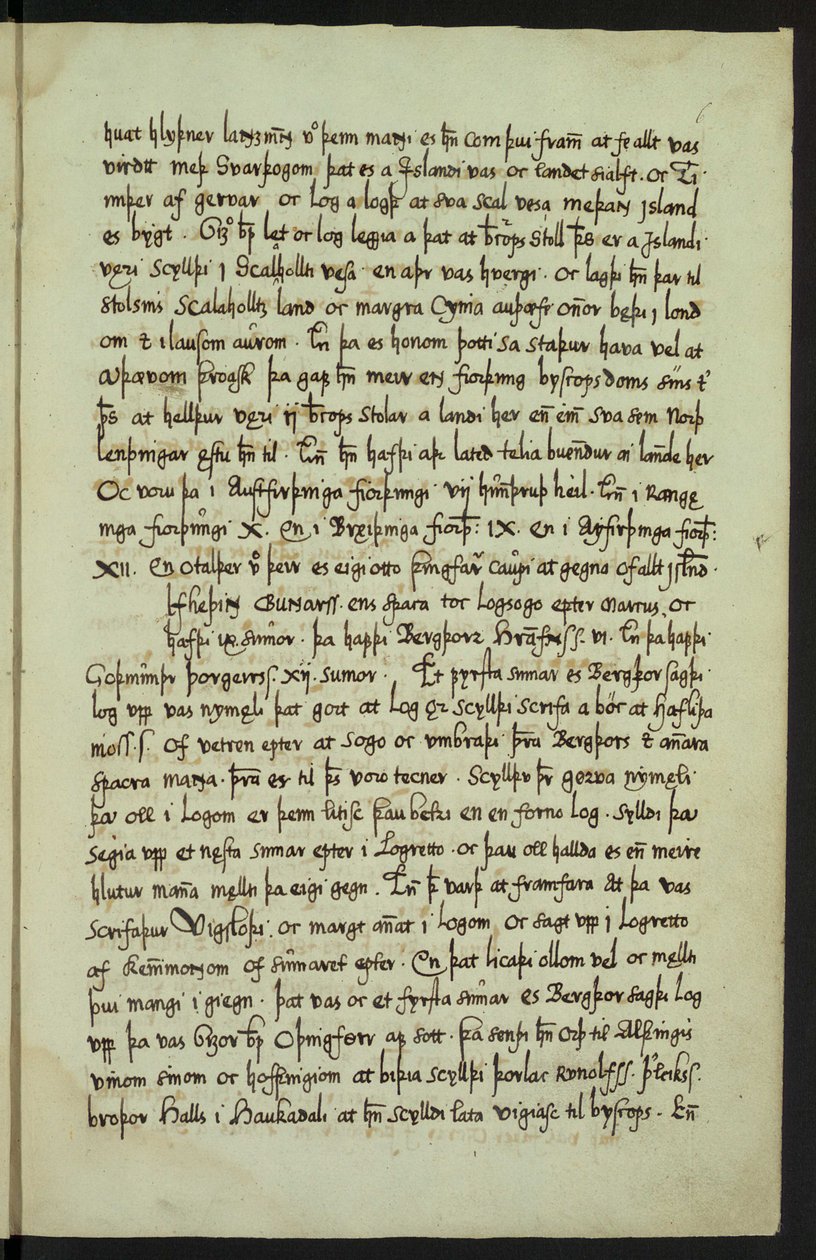 6
huat hlyþner lanzmñ v° þeim maɴi es hñ com þui fram̅ at fe allt vas
virdtt meþ Svarþogom þat es a Jslandi vas oc landet sialft. oc Ti
mþer af gervar oc Log a logþ at sva scal vesa meþaɴ Jsland
es bygt. Gizo͛ bp let oc log leggia a þat at bꝛcops Stoll þs er a Jslandi
vęri Scyllþi J Scalahollti vesa. en aþr vas hvergi. oc lagþi hñ þar til
stolsins Scalaholltz land oc margra Cynia auþæfe on̅or bęþi j lond
om ⁊ i lausom aurom. En̅ þa es honom þotti sa staþur hava vel at
aþævom þroask þa gaf hñ meir eɴ fiorþung byscopsdoms sins t͛
þs at helldur vęri ij bꝛcops Stolar a landi her en̅ ein̅ sva sem Norþ
lendingar ęstu hñ til. En̅ hñ hafþi aþr lated telia buendur ai lande her
Oc voru þa i Austfirþinga fiorþungi vij hun̅druþ heil. En̅ i Rangę
inga fiorþungi X. en i Breiþinga fiorþ: IX. en i Ayfirþinga fiorþ:
XII. en otalþer v͛o þeir es eigi otto þingfarꝛ caupi at gegna of allt Jslnd.
Vlfheþiɴ Guɴarss. ens spaca toc Logsogo epter Marcus, oc
hafþi ix sumor. þa hafþi Bergþorꝛ Hrafnss. vi. En þa hafþi
Goþmunþr þorgerss. xij. Sumor. Et fyrsta sumar es Bergþor sagþi
log upp vas nymęli þat gort at Log or scylldi scrifa a bóc at Hafliþa
moss. s. of vetren epter at sogo oc umbraþi þra Bergþors ⁊ an̅ara
spacra maɴa. þra er til þs voro tecner. Scylldu þr gørva nymęli
þa oll i Logom er þeim litisc þau betri en en forno log. Sylldi þa
segia upp et nęsta sumar epter i Logretto. oc þau oll hallda es en̅ meire
hlutur man̅a męlti þa eigi gegn. En̅ þ varþ at framfara At þa vas
Scrifaþur Vigsloþi. oc margt an̅at i Logom oc sagt upp j Logretto
af kennimoɴom of sumaret epter. En þat licaþi ollom vel oc męlti
þui mangi i giegn. þat vas oc et fyrsta sumar es Bergþor sagþi Log
upp þa vas Gizor bp Oþingførr af sott. þa sendi hñ orþ til Alþingis
vinom sinom oc hofþingiom at biþia scyllþi þorlac Runolfss. þ͛leikss.
broþor Halls i Haukadali at hñ Scylldi lata vigiasc til byscops. En̅